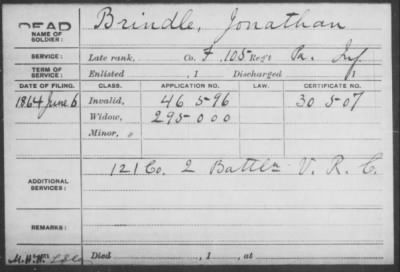 DEAD
NAME OF SOLDIER: Brindle, Jonathan
SERVICE: Late rank, Co. F, 105 Reg't Pa. Inf.
TERM OF SERVICE: Enlisted , 1 Discharged , 1
DATE OF FILING. CLASS. APPLICATION NO. LAW. CERTIFICATE NO.
1864 June 6 Invalid, 46 5-96 30 5-07
Widow, 295-000
Minor,
ADDITIONAL SERVICES: 121 Co. 2 Battln V. R. C.
REMARKS:
Died , 1 , at